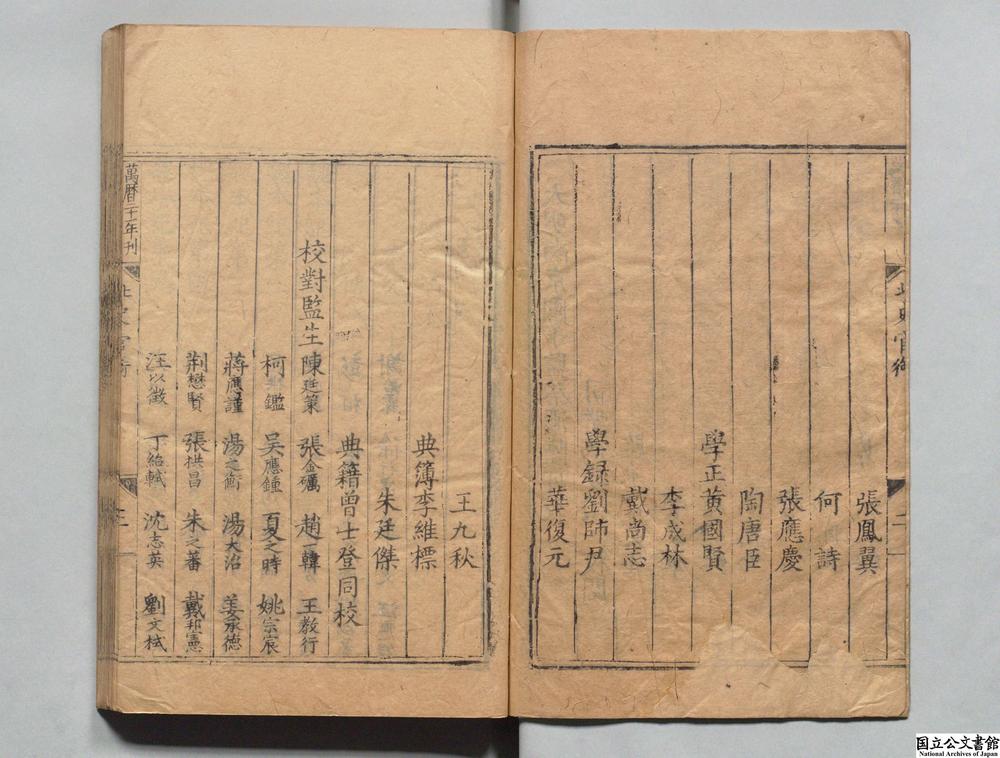 張鳳翼
何詩
張應慶
陶唐臣
學正黄國賢
李成林
戴尚志
學録劉師尹
華復元
王九秋
典簿李維標
朱廷傑
典籍曾士登同校
校對監生陳廷策 張金礪 趙一韓 王教行
柯鑑 吳應鐘 夏之時 姚宗宸
蔣應謹 湯之衡 湯大治 姜承德
荆懋賢 張拱昌 朱之蕃 戴邦憲
汪以徵 丁紹軾 沈志英 劉文栻
萬曆二十年刊
北史官銜
国立公文書館
National Archives of Japan